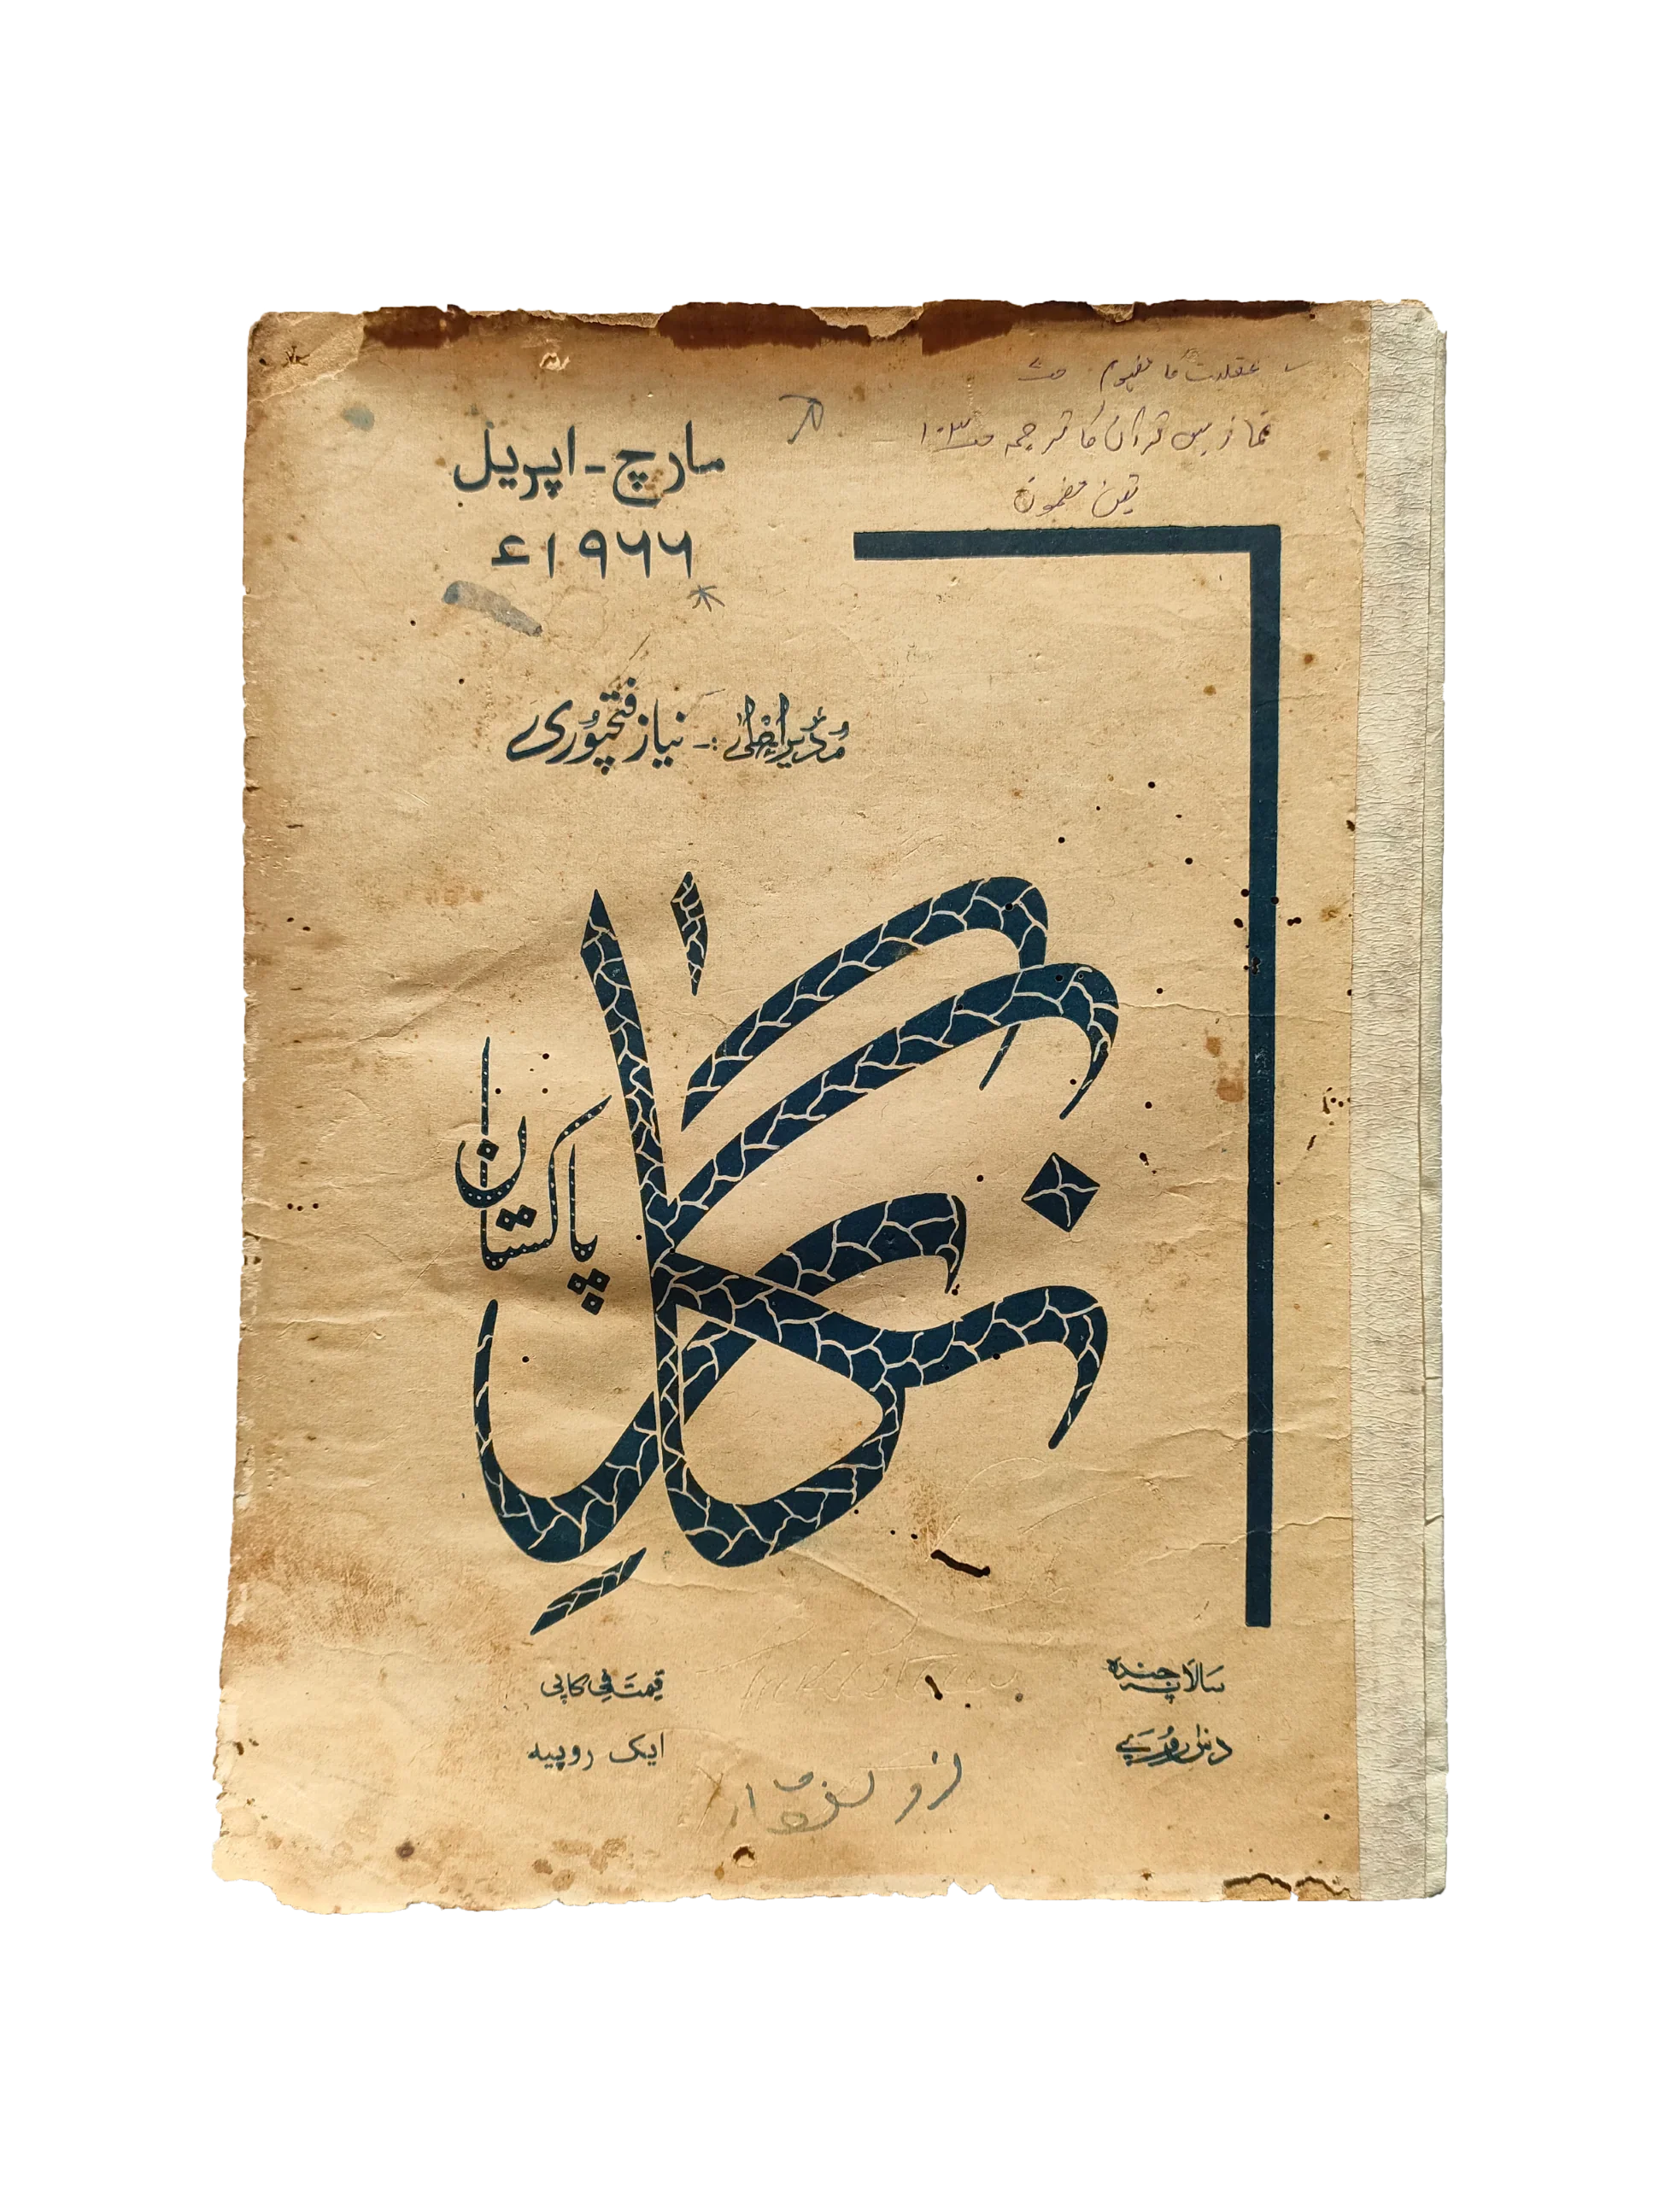 عقلیت کا مفہوم
نماز میں قرآن کا ترجمہ ص ۱۰۳
تین مضمون
مارچ - اپریل
۱۹۶۶ء
مُدیرِ اعلیٰ :- نیاز فتحپُوری
نگار
پاکستان
سالانہ چندہ
دس روپے
قیمت فی کاپی
ایک روپیہ